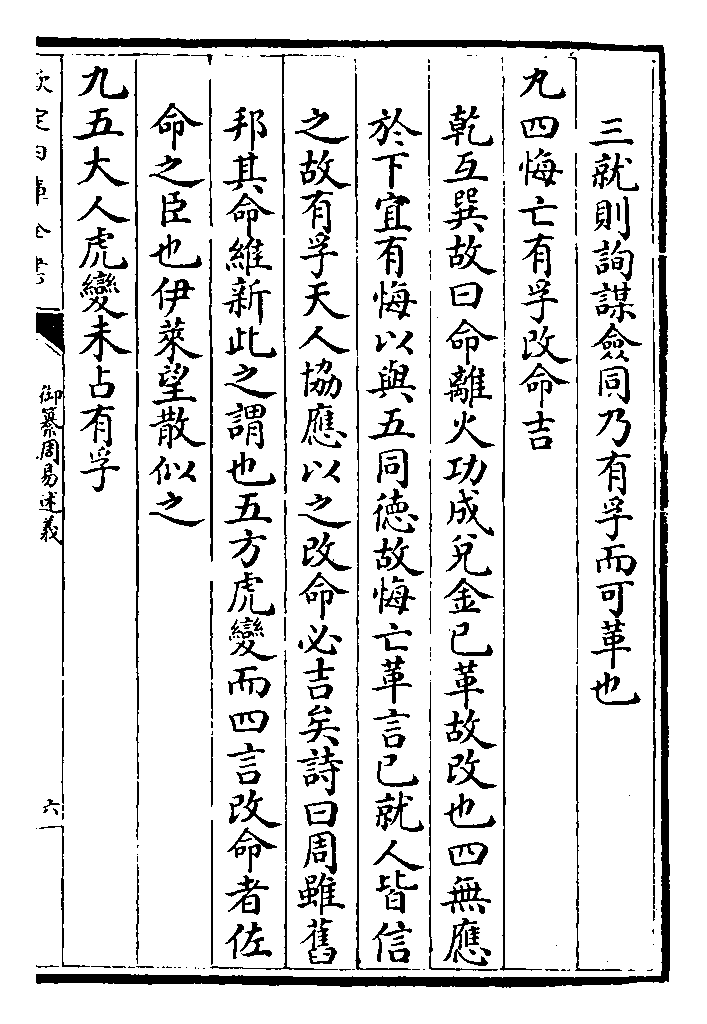 三就則詢謀僉同乃有孚而可革也
九四悔亡有孚改命吉
乾互巽故曰命離火功成兌金已革故改也四無應
於下宜有悔以與五同徳故悔亡革言已就人皆信
之故有孚天人協應以之改命必吉矣詩曰周雖舊
邦其命維新此之謂也五方虎變而四言改命者佐
命之臣也伊萊望散似之
九五大人虎變未占有孚
欽定四庫全書
御纂周易述義
六